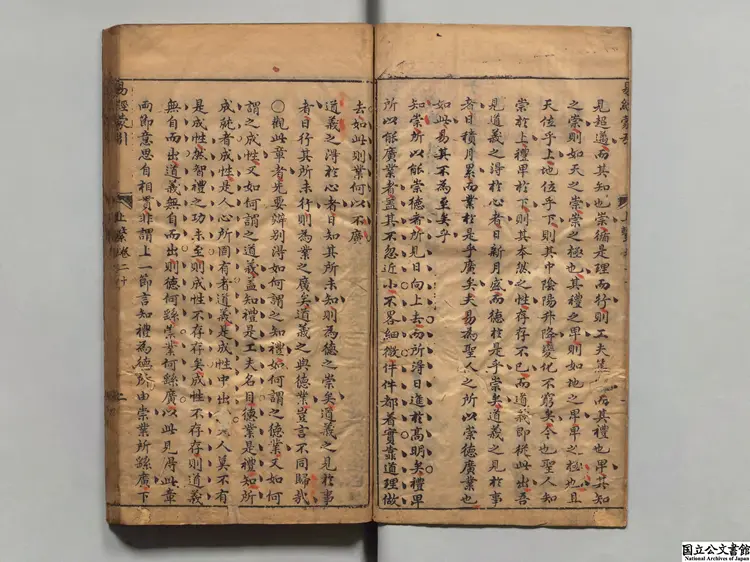 見超邁而其知也崇循是理而行則工夫篤而其禮也卑其知
之崇則如天之崇崇之極也其禮之卑則如地之卑卑之極也且
天位乎上地位乎下則其中陰陽升降變化不窮矣今也聖人知
崇於上禮卑於下則其本然之性存存不已而道義即從此出吾
見道義之得於心者日新月盛而德於是乎崇矣道義之見於事
者日積月累而業於是乎廣矣夫易為聖人之所以崇德廣業也
如此易其不為至矣乎
知崇所以能崇德者所見日向上去而所得日進於高明矣禮卑
所以能廣業者蓋其不忽近小不畧細微件件都着實靠道理做
易經蒙引
上繫卷二十
二
去如此則業何以不廣
道義之得於心者日知其所未知則為德之崇矣道義之見於事
者日行其所未行則為業之廣矣道義之與德業豈言不同歸哉
○觀此章者先要辨別得如何謂之知禮如何謂之德業又如何
謂之成性又如何謂之道義蓋知禮是工夫名目德業是禮知所
成就者成性是人心所固有者道義是成性中出人莫不有
是成性然智禮之功未至則成性不存存矣成性不存存則道義
無自而出道義無自而出則德何繇崇業何繇廣以此見得此章
兩節意思自相貫非謂上一節言知禮為德所由崇業所繇廣下
国立公文書館
National Archives of Japan